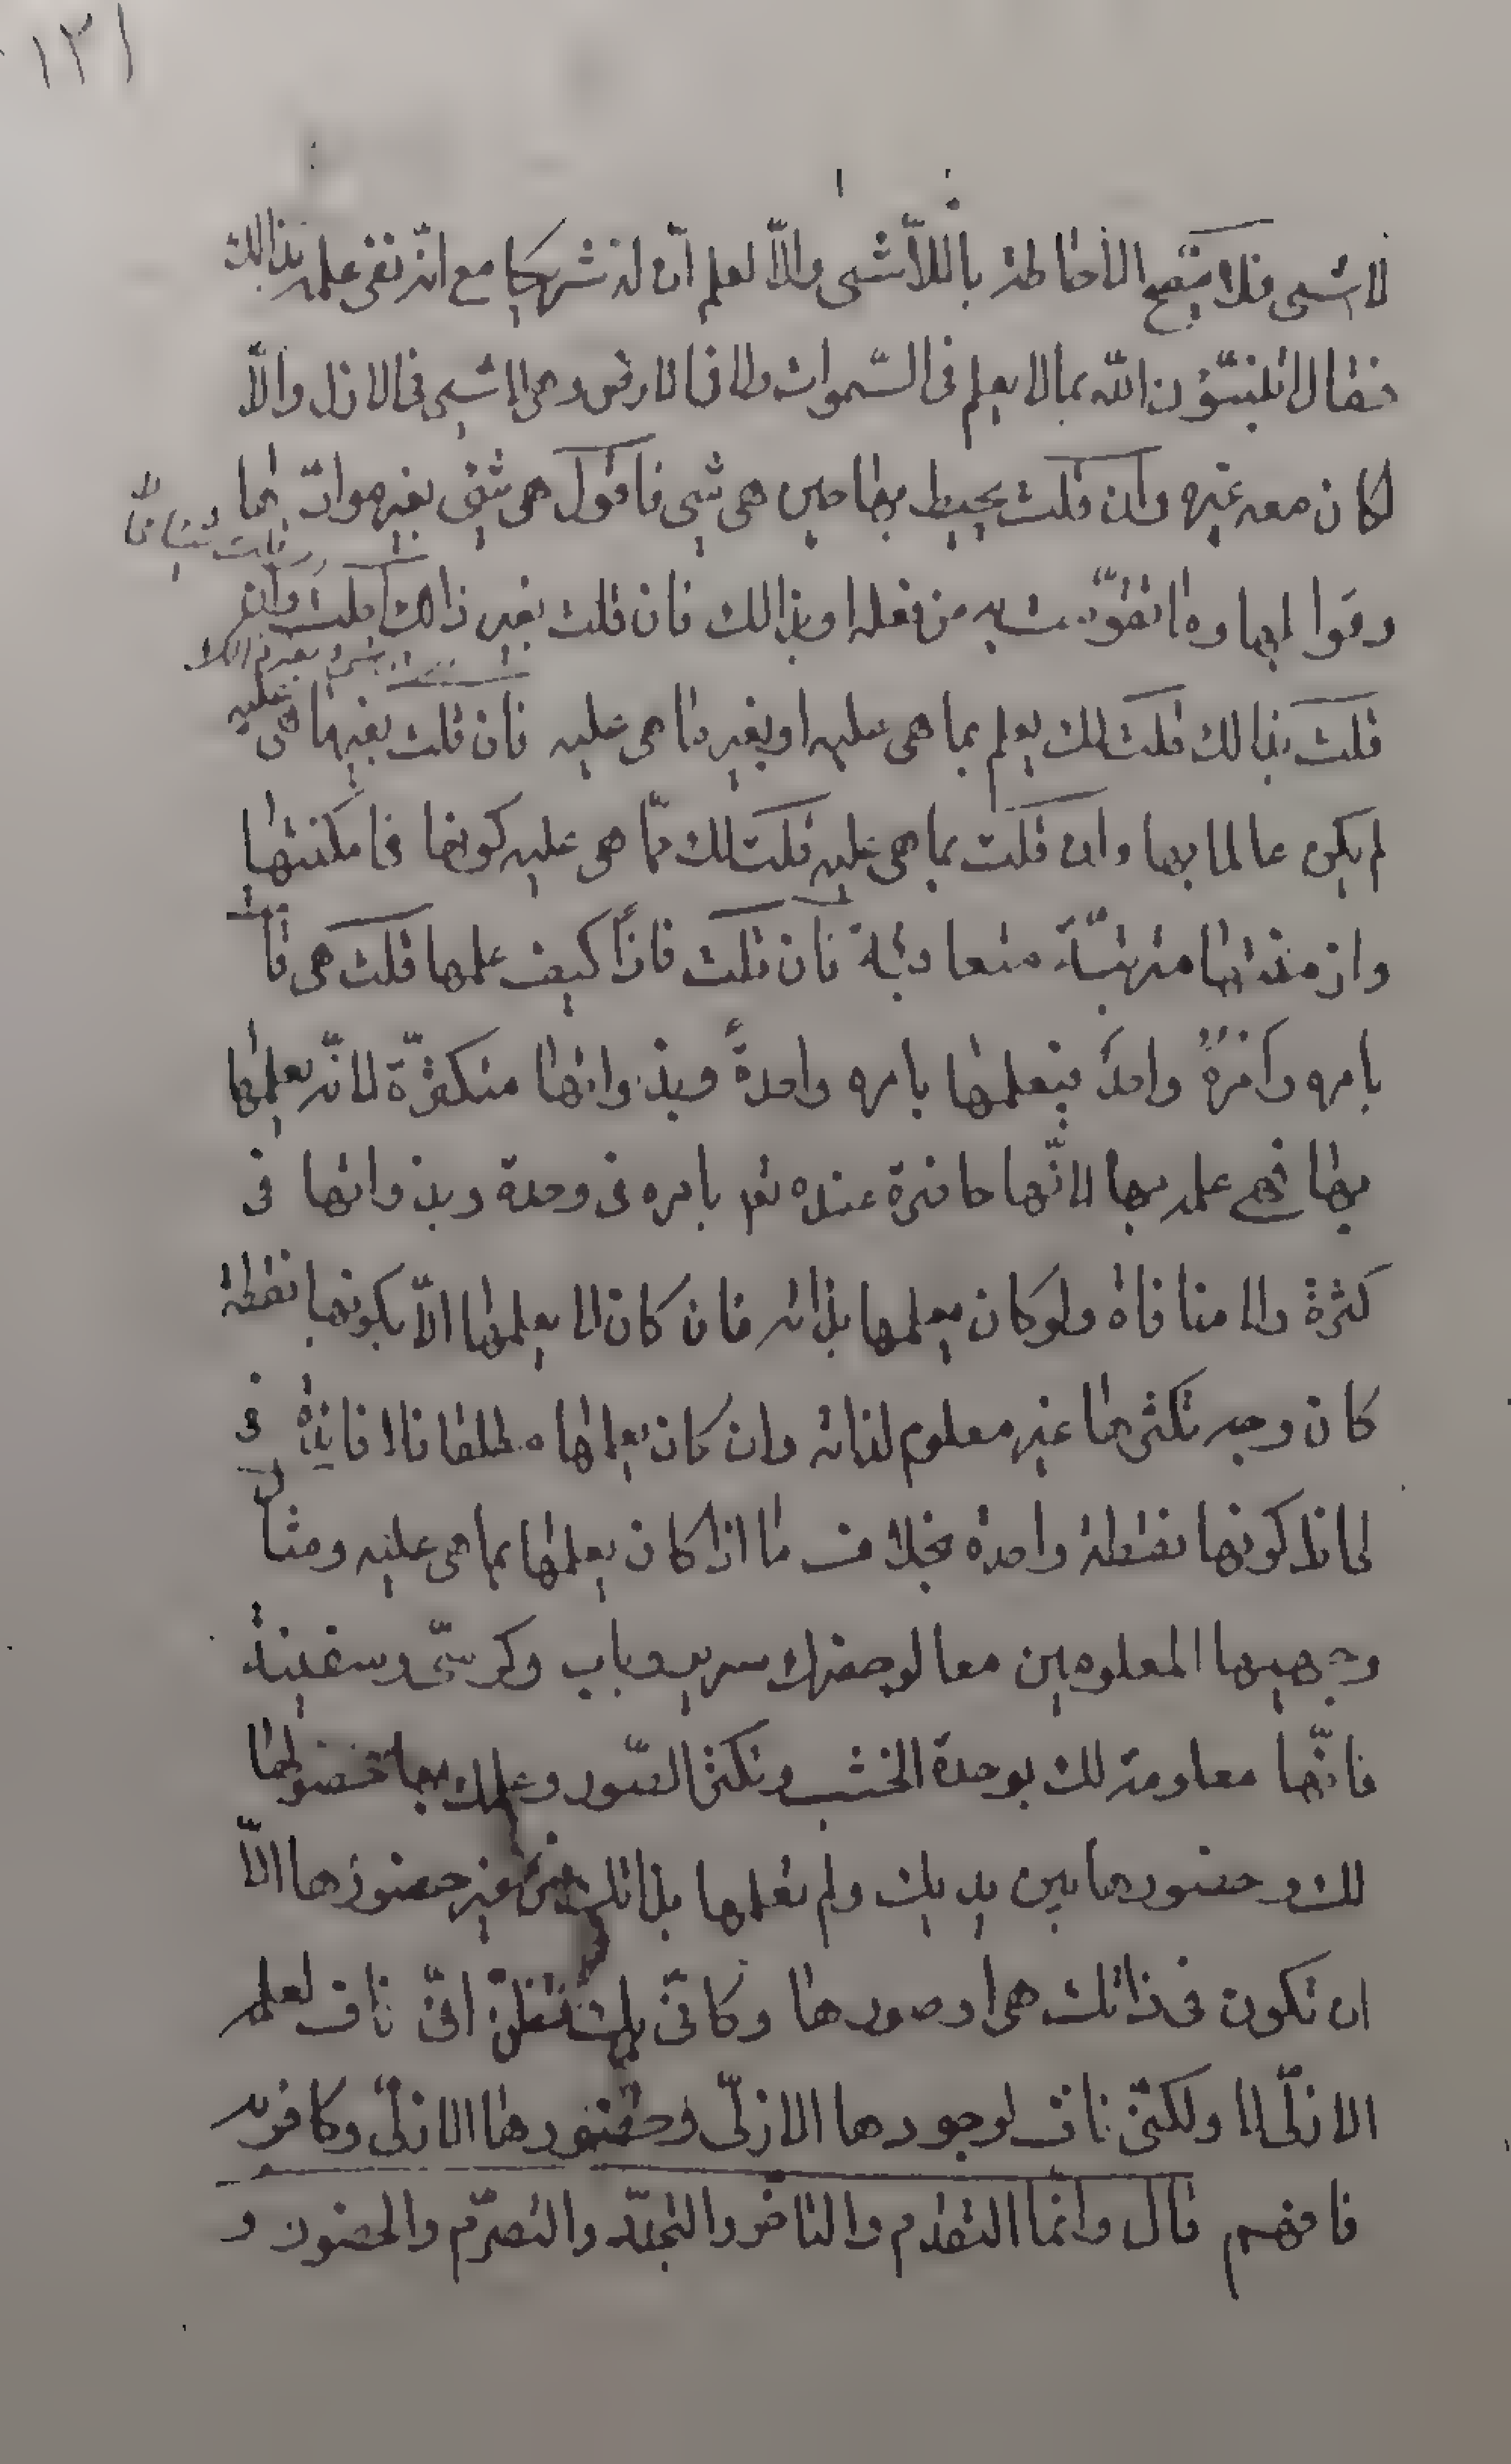 ١٣١
لا شيء فلا يتصح الأحاطة باللّاشي والّا لعلم انّ له شريكا مع انّه نفى علمه بذالك
فقال اتنبّؤن اللّه بما لا يعلم في السّموات ولا في الارض وهي لا شيء في الازل والّا
لكان معه غيره وان قلت يحيط بها حين هي شي فاقول هي شيئ بغير موادّها
وقوابلها وما تقوّمت به من فعله او بذالك فان قلت بغير ذالك قلت وان
قلت بذالك قلت لك يعلم بما هي عليه او بغير ما هي عليه فان قلت بغير ما هي عليه
لم يكن عالما بها وان قلت بما هي عليه قلت لك ممّا هي عليه كونها في امكنتها
وازمنتها مترتبّة متعاقبة فان قلت فاذًا كيف علمها قلت هي قا
بامره وامره واحد فيعلمها بامره واحدةً وبذواتها متكثّرة لانّه يعلمها
بها فهي علمه بها لانّها حاضرة عنده تعم بامره في وحدة وبذواتها في
كثرة ولا منافاة ولو كان يعلمها بذاته فان كان لا يعلمها الّا بكونها نقطة
كان وجه تكثرها غير معلوم لذاته وان كان يعلمها مطلقا فلا فائدة في
لحاظ كونها نقطة واحدة بخلاف ما اذا كان يعلمها بما هي عليه ومثال
وجهيها المعلومين معا لو حضرك سرير وباب وكرسيّ وسفينة
فانّها معلومة لك بوحدة الخشب وتكثر الصّور وعلمك بها حضولها
لك وحضورها بين يديك ولم تعلمها بذاتك من غير حضورها الّا
ان تكون في ذاتك هي او صورها وكانّي بك تظنّ انّي ناف لعلمه
الازلّي لا ولكنّي ناف لوجودها الازلّي وحضورها الازلّي وكافر به
فافهم قال وانّما التقدّم والتاخّر والتجدّد والتصرّم والحضور و